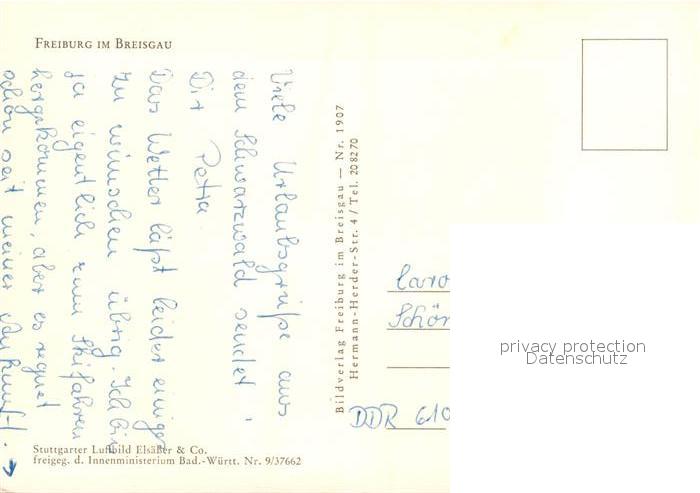 FREIBURG IM BREISGAU
Viele Urlaubsgrüße aus
dem Schwarzwald sendet
Dir Petra
Das Wetter läßt leider einiges
zu wünschen übrig. Ich bin
ja eigentlich zum Skifahren
hergekommen, aber es regnet
schon seit meiner Ankunft.
Stuttgarter Luftbild Elsäßer & Co.
freigeg. d. Innenministerium Bad.-Württ. Nr. 9/37662
Bildverlag Freiburg im Breisgau — Nr. 1907
Hermann-Herder-Str. 4 / Tel. 208270
Caro
Schön
DDR 610
privacy protection
Datenschutz